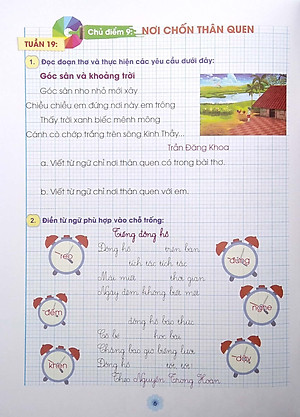 Chủ điểm 9: NƠI CHỐN THÂN QUEN
TUẦN 19:
1. Đọc đoạn thơ và thực hiện các yêu cầu dưới đây:
Góc sân và khoảng trời
Góc sân nho nhỏ mới xây
Chiều chiều em đứng nơi này em trông
Thấy trời xanh biếc mênh mông
Cánh cò chớp trắng trên sông Kinh Thầy...
Trần Đăng Khoa
a. Viết từ ngữ chỉ nơi thân quen có trong bài thơ.
b. Viết từ ngữ chỉ nơi thân quen với em.
2. Điền từ ngữ phù hợp vào chỗ trống:
Tiếng đồng hồ
Đồng hồ trên bàn
tích tắc tích tắc
Mải miết thời gian
Ngày đêm không biết mệt
đồng hồ báo thức
Cô bé học bài
Chẳng bao giờ biếng lười
Đồng hồ tót tót
Theo Nguyễn Trọng Hoàn
đếm
khen
dậy
6